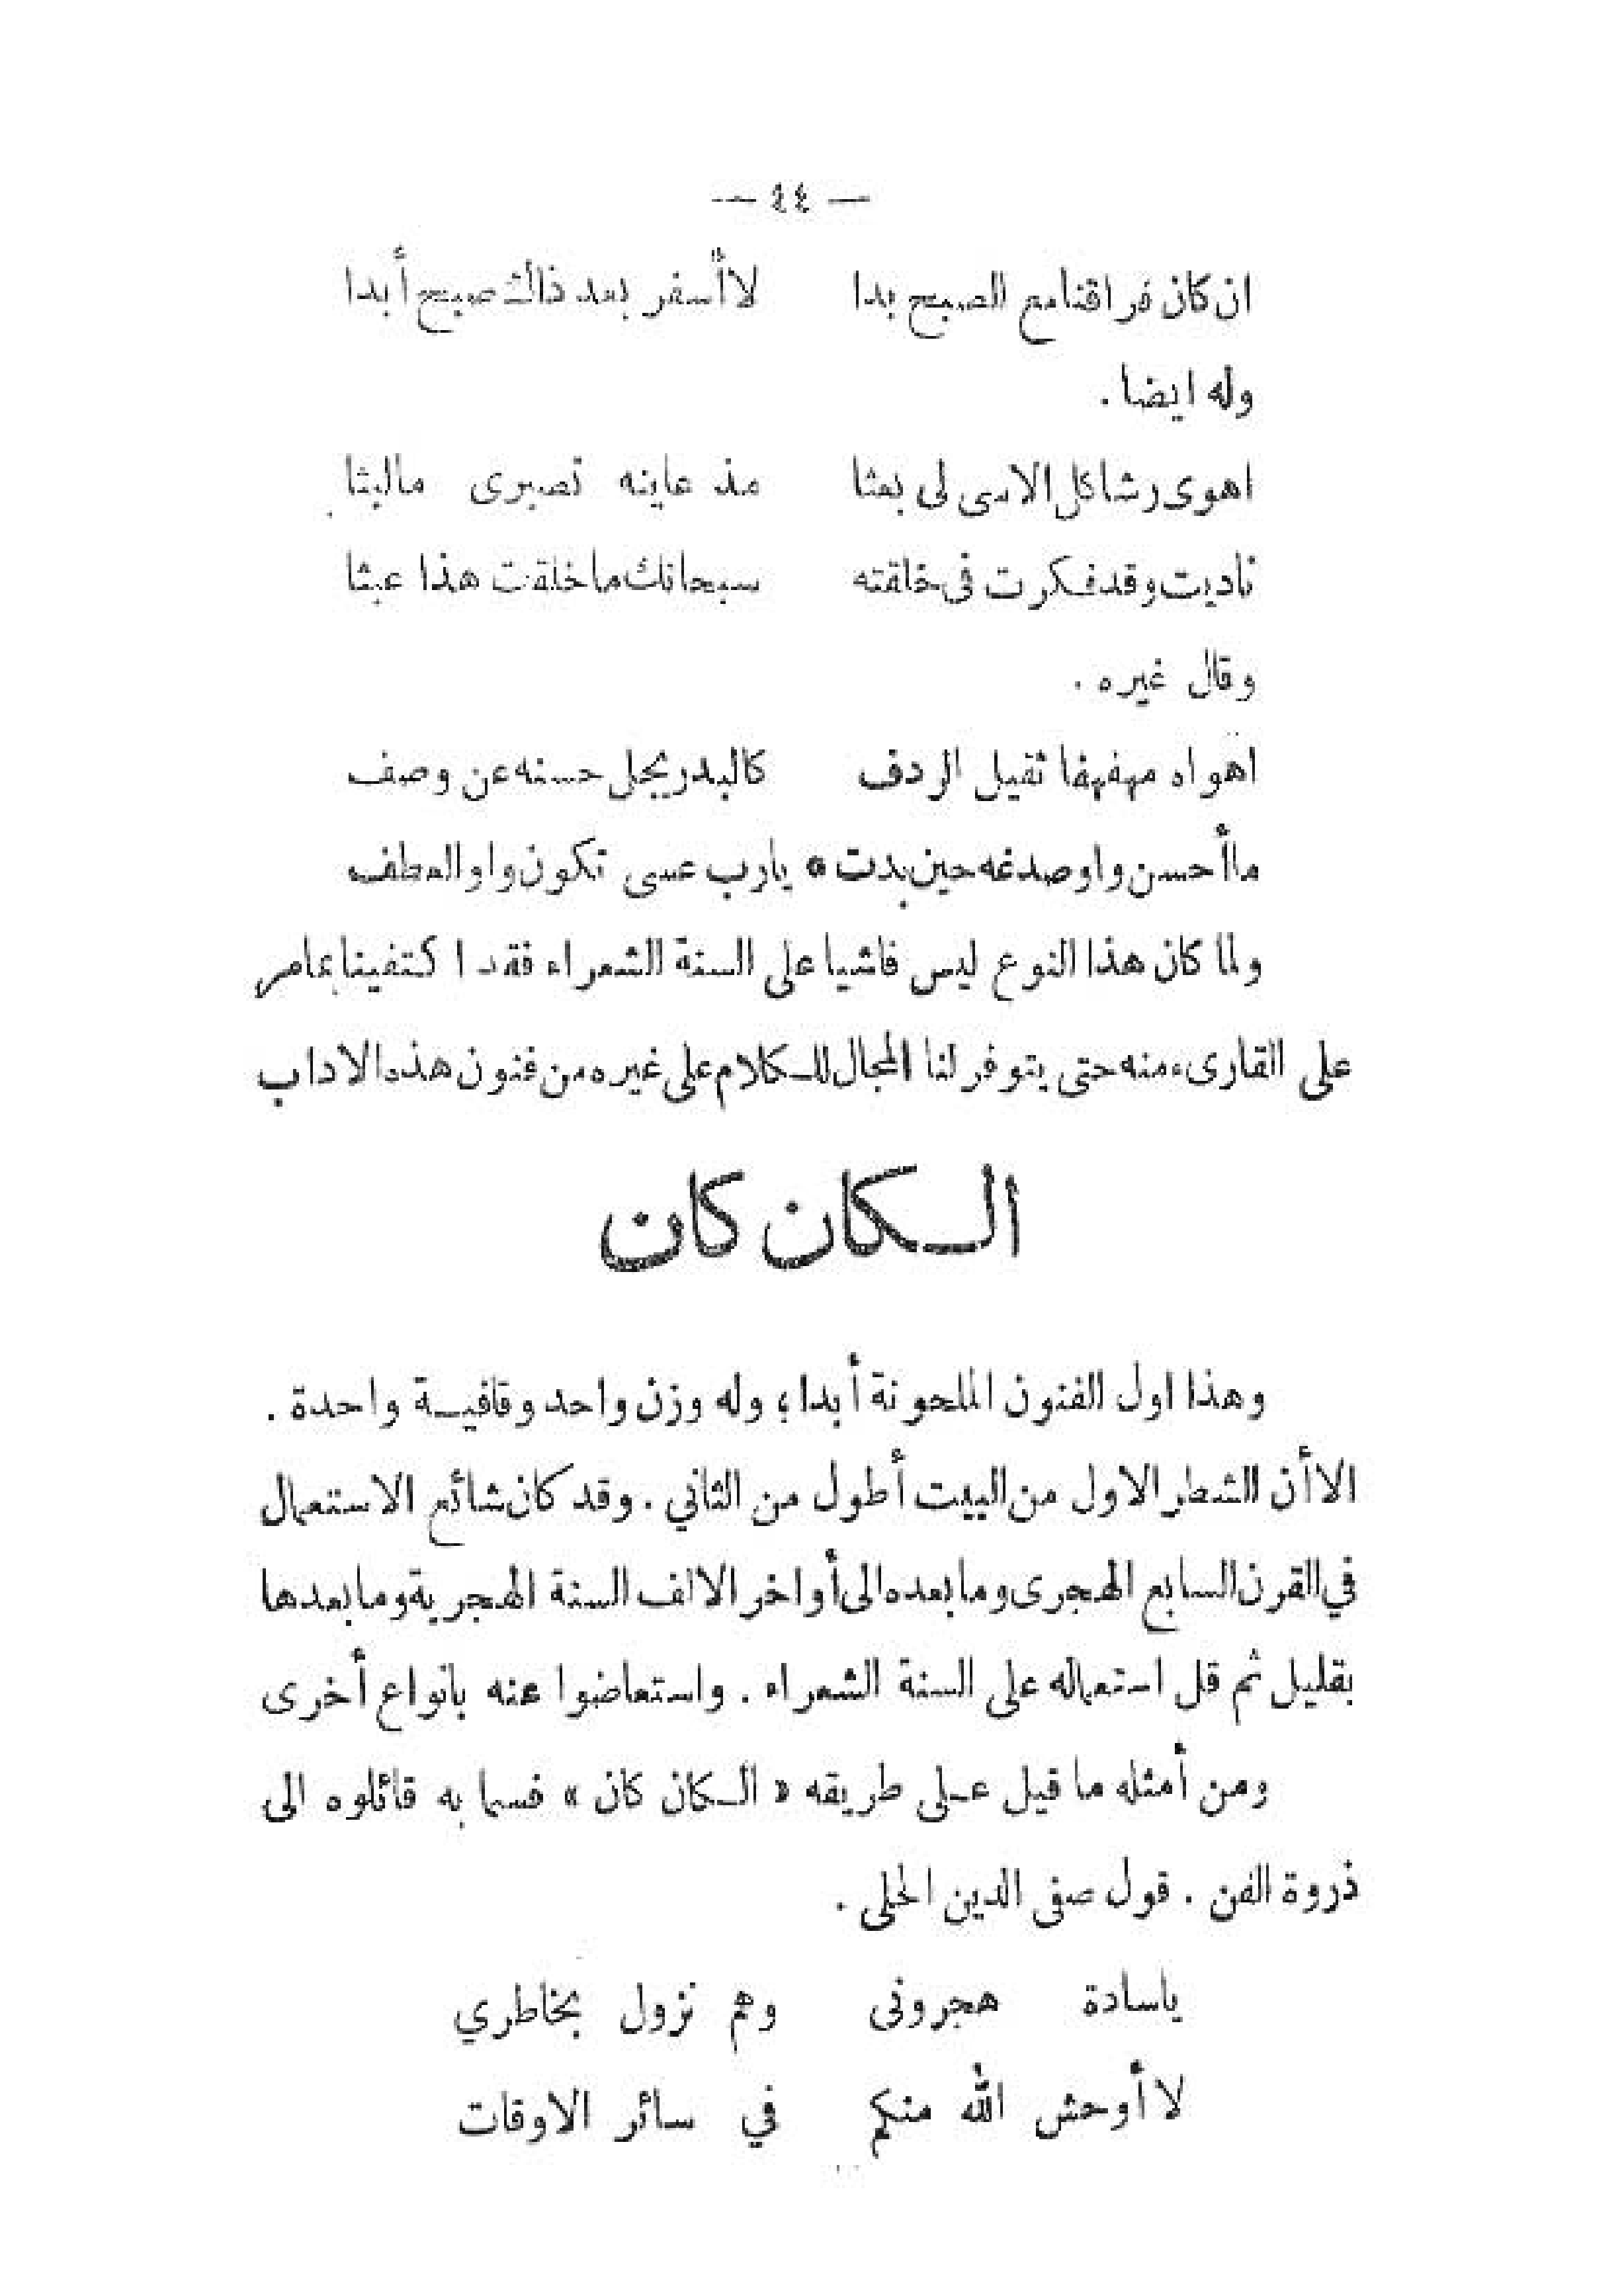 — ٤٤ —
ان كان فراقنا مع الصبح بدا لا أسفر بعد ذاك صبح أبدا
وله ايضا .
اهوى رشا كل الاسى لى بعثا مذ عاينه تصبرى مالبثا
ناديت وقد فكرت فى خلقته سبحانك ما خلقت هذا عبثا
وقال غيره .
اهواه مهفهفا ثقيل الردف كالبدر يجلى حسنه عن وصف
ما أحسن واو صدغه حين بدت « يارب عسى تكون واو العطف
ولما كان هذا النوع ليس فاشيا على السنة الشعراء فقد اكتفينا بمامر
على القارىء منه حتى يتوفر لنا المجال للكلام على غيره من فنون هذه الاداب
الكان كان
وهذا اول الفنون الملحونة أبدا؛ وله وزن واحد وقافية واحدة .
الا أن الشطر الاول من البيت أطول من الثاني . وقد كان شائع الاستعمال
في القرن السابع الهجرى وما بعده الى أواخر الالف السنة الهجرية وما بعدها
بقليل ثم قل استعماله على السنة الشعراء . واستعاضوا عنه بانواع أخرى
ومن أمثله ما قيل على طريقه « الكان كان » فسما به قائلوه الى
ذروة الفن . قول صفى الدين الحلى .
ياسادة هجرونى وهم نزول بخاطري
لا أوحش الله منكم في سائر الاوقات